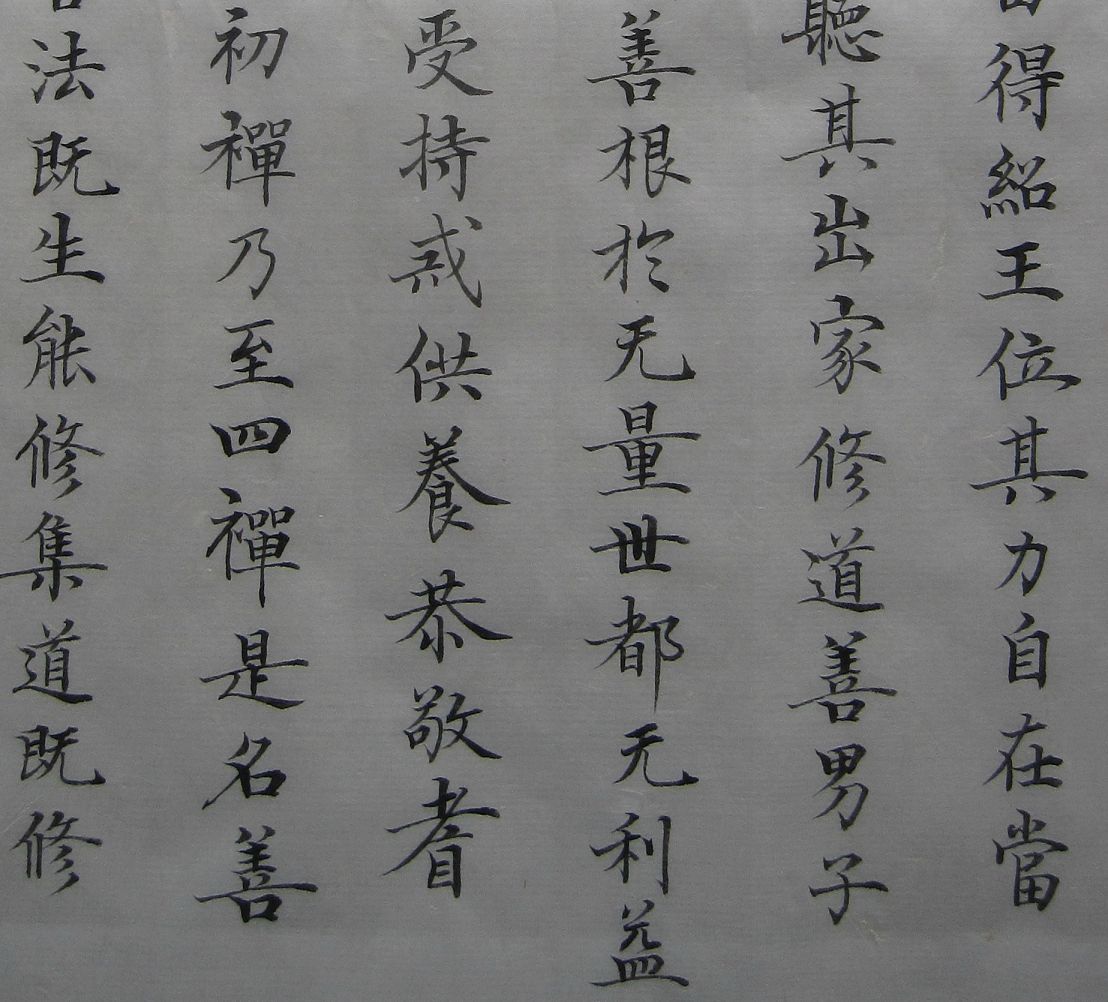 得紹王位其力自在當
聽其出家修道善男子
善根於无量世都无利益
受持戒供養恭敬者
初禪乃至四禪是名善
法既生能修集道既修